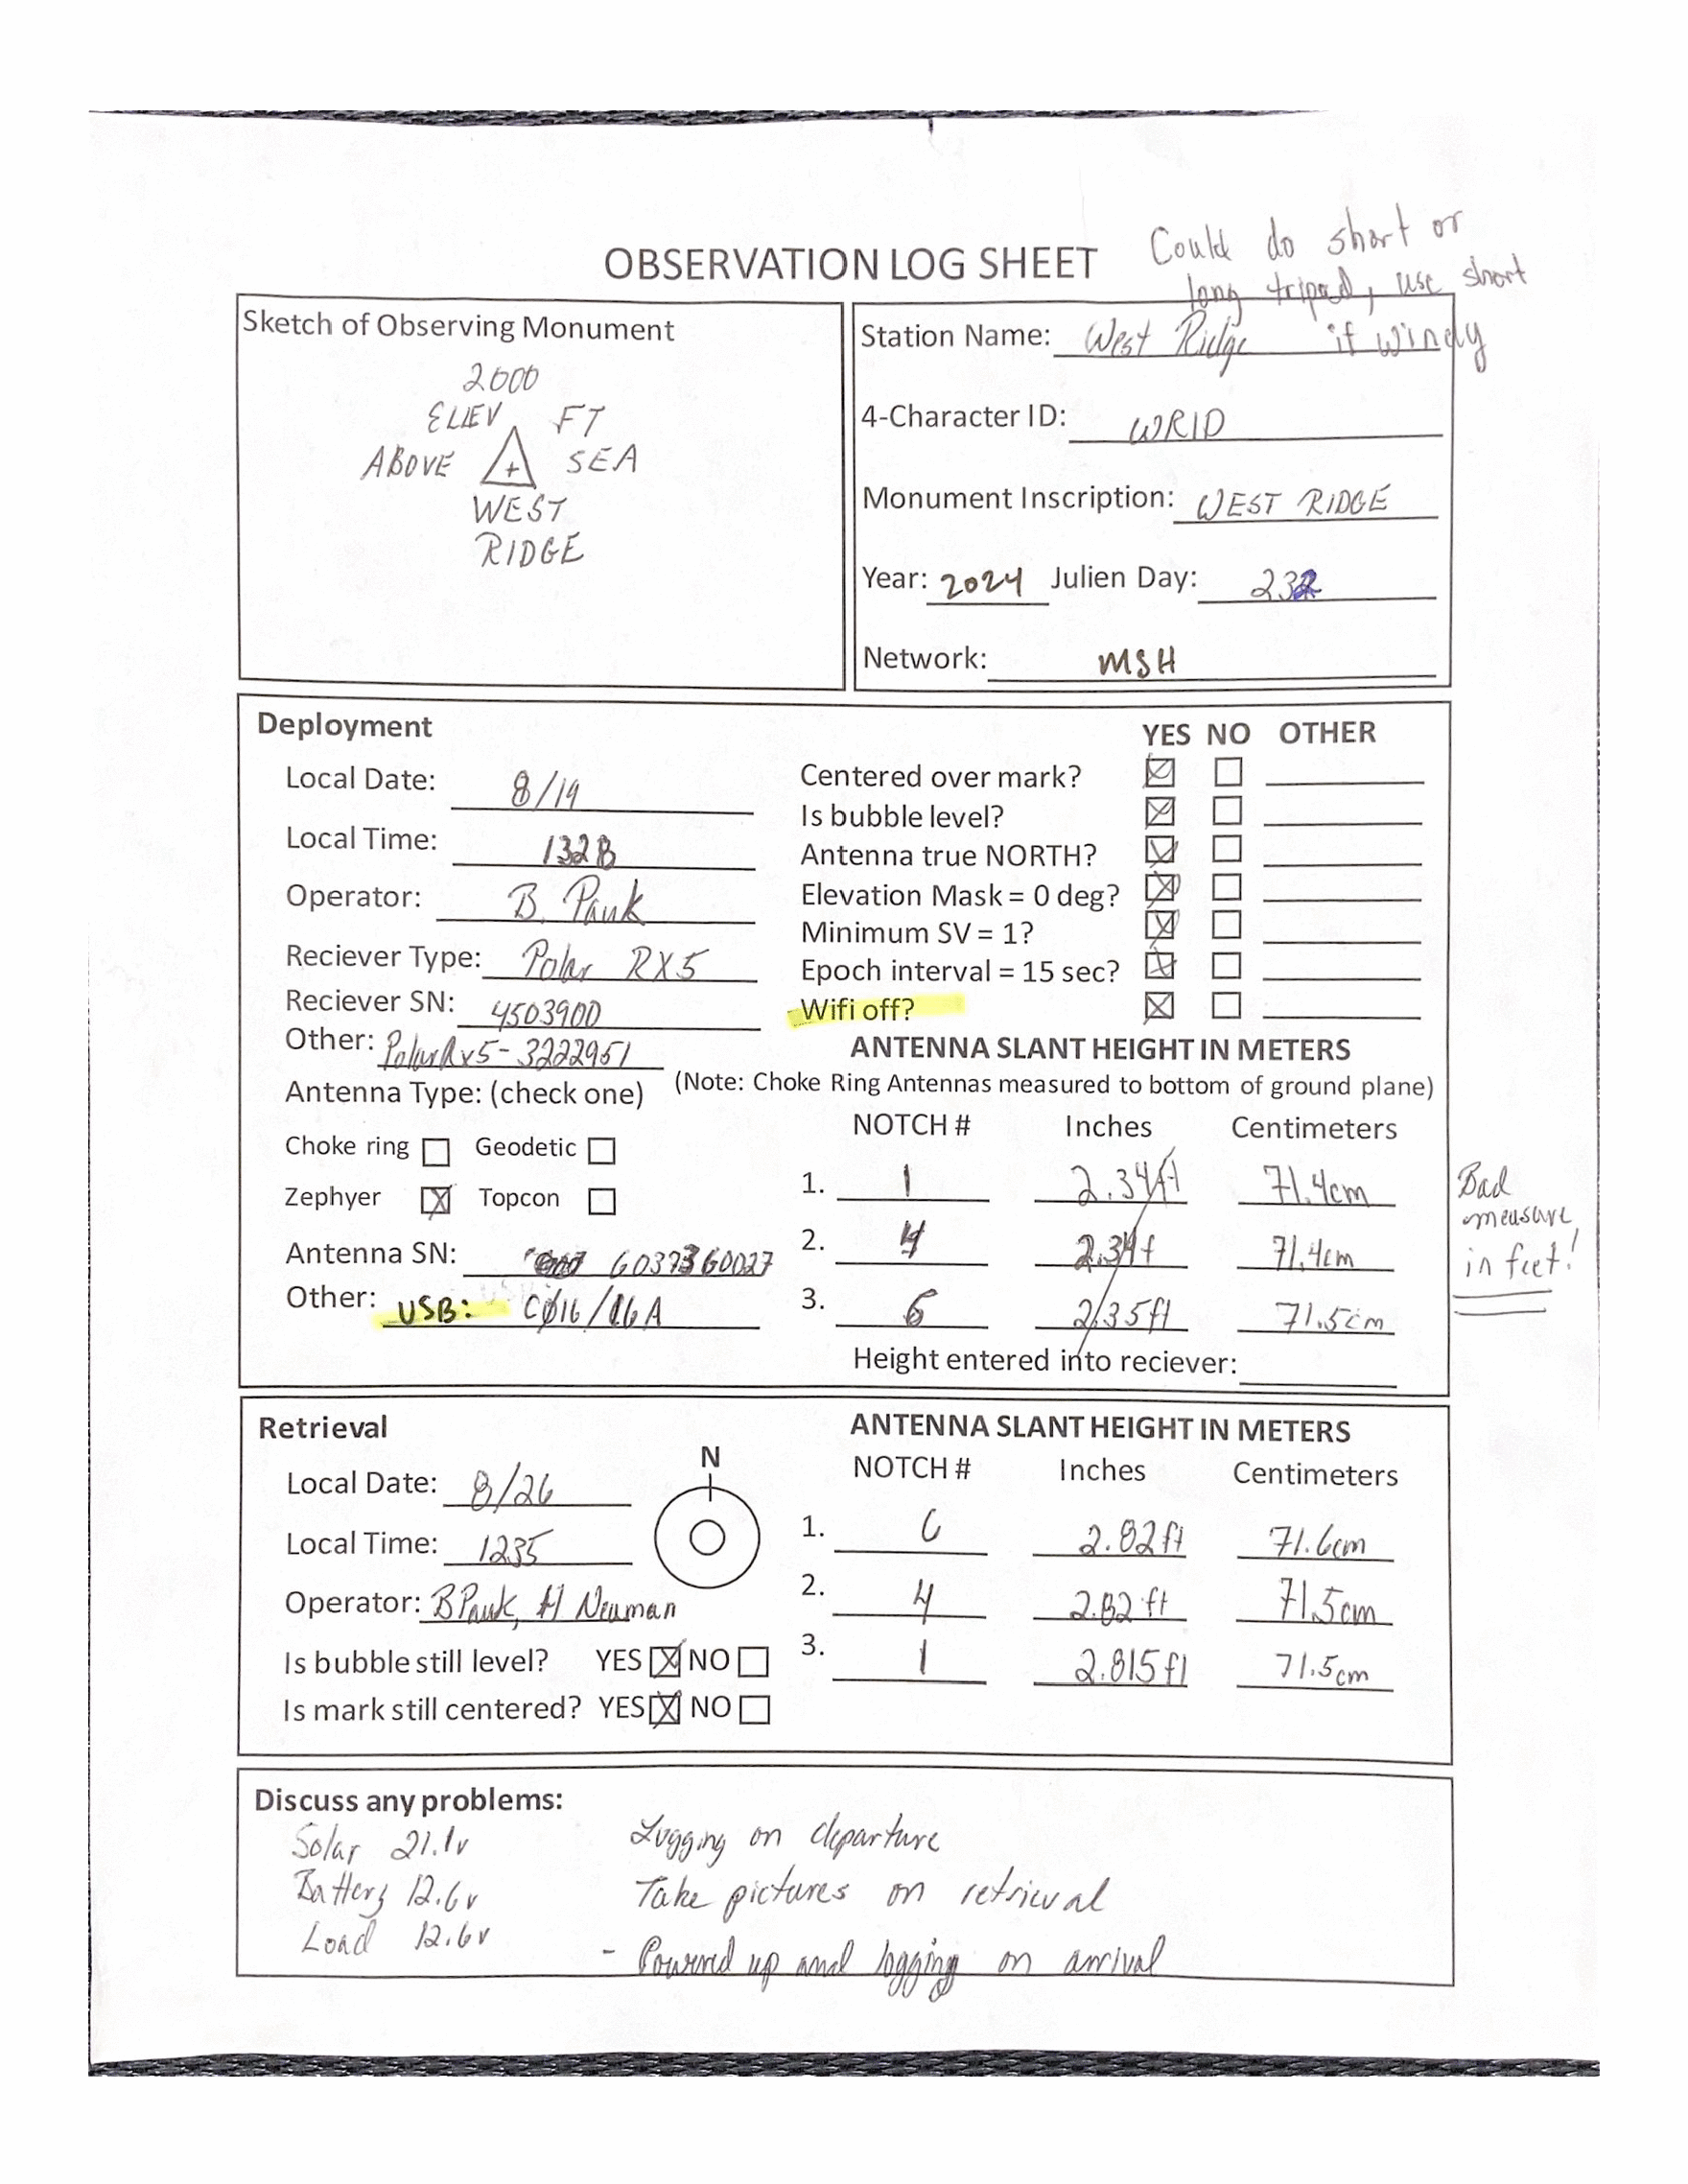 Could do short or
long tripod, use short
if windy
OBSERVATION LOG SHEET
Sketch of Observing Monument
2000
ELEV FT
ABOVE SEA
WEST
RIDGE
Station Name: West Ridge
4-Character ID: WRID
Monument Inscription: WEST RIDGE
Year: 2024 Julien Day: 232
Network: MSH
Deployment
Local Date: 8/19
Local Time: 1328
Operator: B. Pauk
Reciever Type: Polar RX5
Reciever SN: 4503900
Other: PolarRx5-3222951
Antenna Type: (check one)
Choke ring Geodetic
Zephyer Topcon
Antenna SN: 6037360027
Other: USB: CØ16/16A
YES NO OTHER
Centered over mark?
Is bubble level?
Antenna true NORTH?
Elevation Mask = 0 deg?
Minimum SV = 1?
Epoch interval = 15 sec?
Wifi off?
ANTENNA SLANT HEIGHT IN METERS
(Note: Choke Ring Antennas measured to bottom of ground plane)
NOTCH # Inches Centimeters
1. 1 2.34ft 71.4cm
2. 4 2.34f 71.4cm
3. 6 2.35ft 71.5cm
Height entered into reciever:
Bad
measure
in feet!
Retrieval
Local Date: 8/26
Local Time: 1235
Operator: BPauk, H Neuman
Is bubble still level? YES NO
Is mark still centered? YES NO
N
ANTENNA SLANT HEIGHT IN METERS
NOTCH # Inches Centimeters
1. 6 2.82ft 71.6cm
2. 4 2.82 ft 71.5cm
3. 1 2.815ft 71.5cm
Discuss any problems:
Solar 21.1v
Battery 12.6v
Load 12.6v
Logging on departure
Take pictures on retrieval
- Powered up and logging on arrival